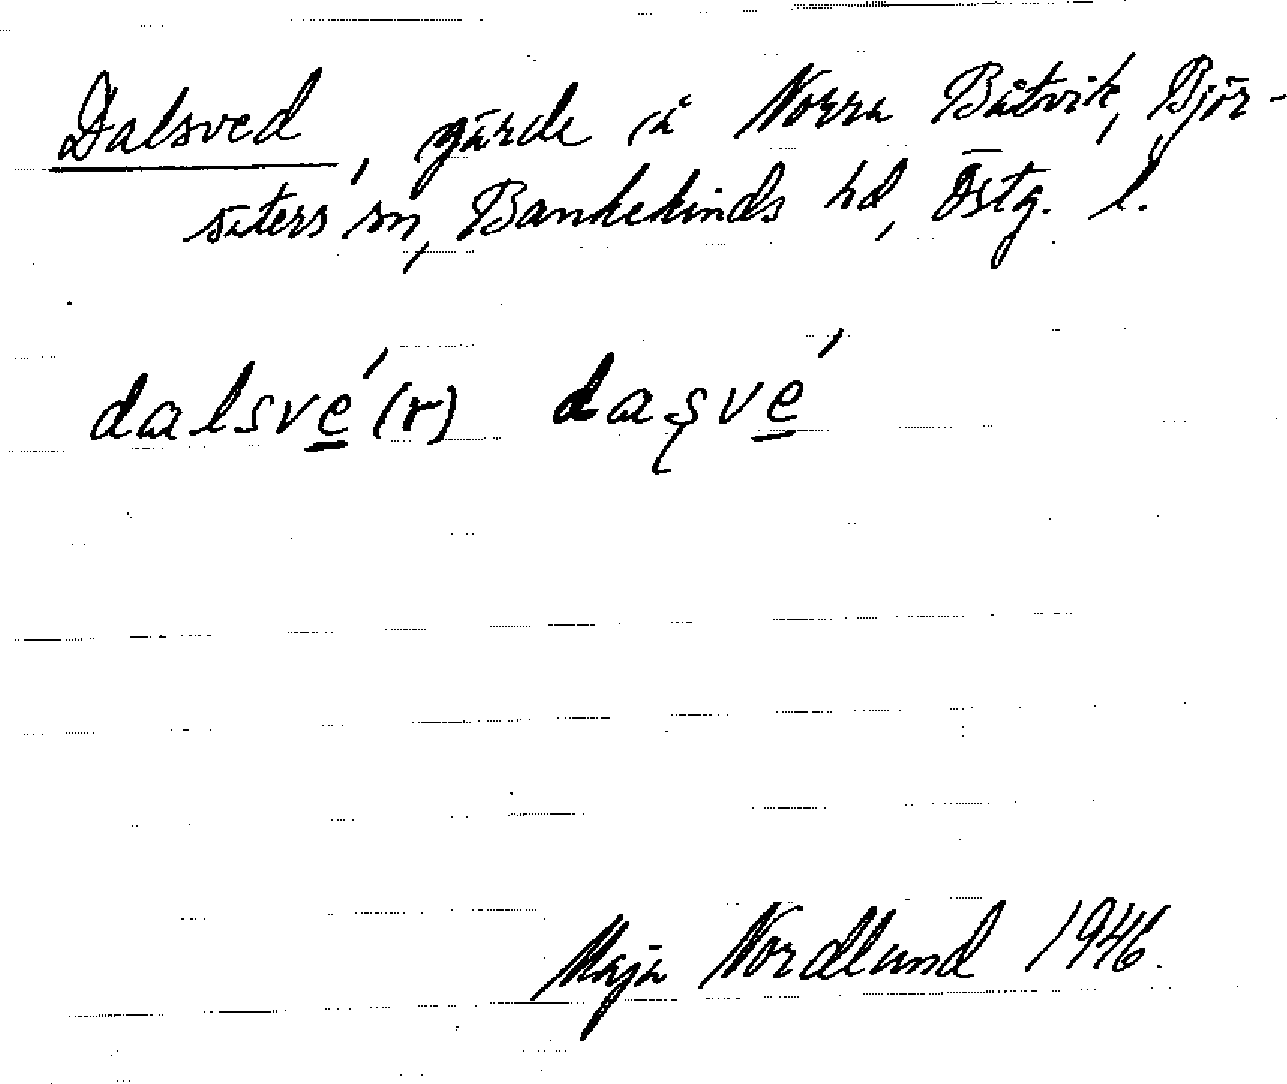 Dalsved, gärde å Norra Båtvik, Björ-
säters sn, Bankekinds hd, Östg. l.
dalsve̲´(r) daşve̲´
Maja Nordlund 1946.